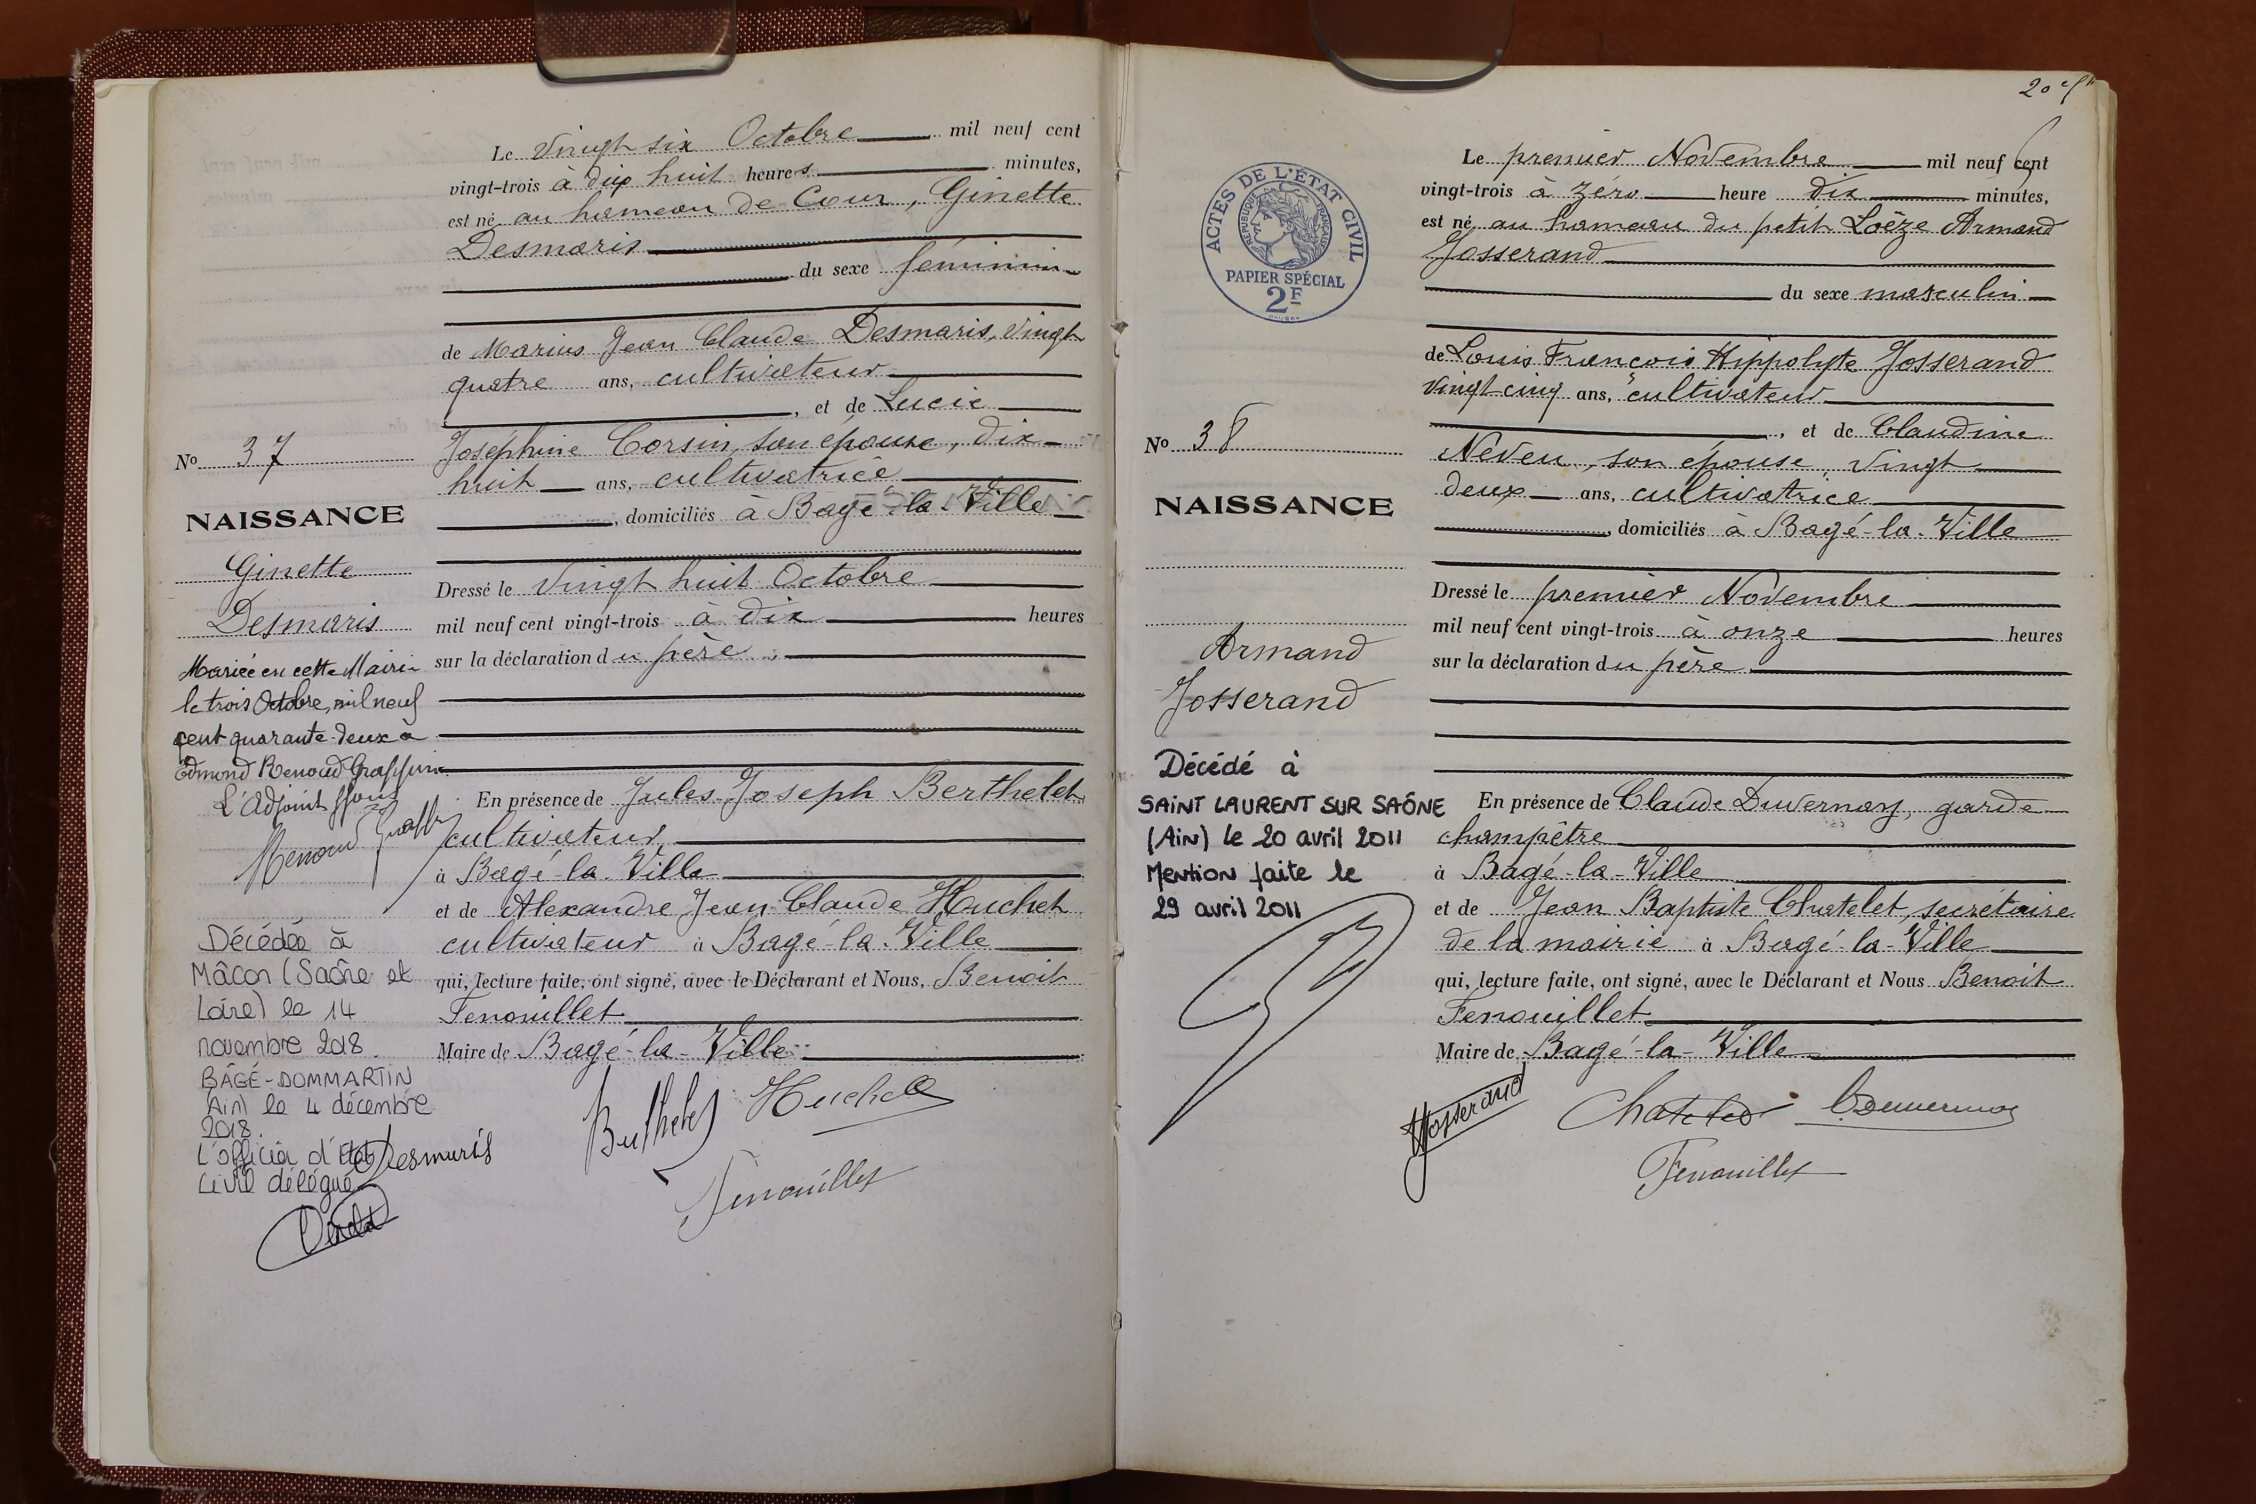 Le vingt six Octobre mil neuf cent
vingt-trois à dix huit heures minutes,
est né au hameau de Cour, Ginette
Desmaris
du sexe féminin
de Marius Jean Claude Desmaris, vingt
quatre ans, cultivateur
, et de Lucie
Joséphine Corsin, son épouse, dix-
huit ans, cultivatrice
, domiciliés à Bagé-la-Ville
Dressé le vingt huit Octobre
mil neuf cent vingt-trois à dix heures
sur la déclaration du père
En présence de Jules Joseph Berthelet
cultivateur
à Bagé-la-Ville
et de Alexandre Jean Claude Huchet
cultivateur à Bagé-la-Ville
qui, lecture faite, ont signé, avec le Déclarant et Nous, Benoit
Fenouillet
Maire de Bagé-la-Ville
Berthelet Huchet
Desmaris
Fenouillet
No 37
NAISSANCE
Ginette
Desmaris
Mariée en cette Mairie
le trois Octobre, mil neuf
cent quarante-deux à
Edmond Renoud Graffin
L'Adjoint
Renoud
Décédée à
Mâcon (Saône et
Loire) le 14
novembre 2018.
BÂGÉ-DOMMARTIN
(Ain) le 4 décembre
2018.
L'officier d'état
civil délégué
ACTES DE L'ÉTAT CIVIL
RÉPUBLIQUE FRANÇAISE
PAPIER SPÉCIAL
2F
Le premier Novembre mil neuf cent
vingt-trois à zéro heure dix minutes,
est né au hameau du petit Loëze Armand
Josserand
du sexe masculin
de Louis François Hippolyte Josserand
vingt-cinq ans, cultivateur
, et de Claudine
Neveu, son épouse, vingt
deux ans, cultivatrice
, domiciliés à Bagé-la-Ville
Dressé le premier Novembre
mil neuf cent vingt-trois à onze heures
sur la déclaration du père
En présence de Claude Duvernay, garde
champêtre
à Bagé-la-Ville
et de Jean Baptiste Chatelet, secrétaire
de la mairie à Bagé-la-Ville
qui, lecture faite, ont signé, avec le Déclarant et Nous Benoit
Fenouillet
Maire de Bagé-la-Ville
Josserand Chatelet C. Duvernay
Fenouillet
No 38
NAISSANCE
Armand
Josserand
Décédé à
SAINT LAURENT SUR SAÔNE
(Ain) le 20 avril 2011
Mention faite le
29 avril 2011